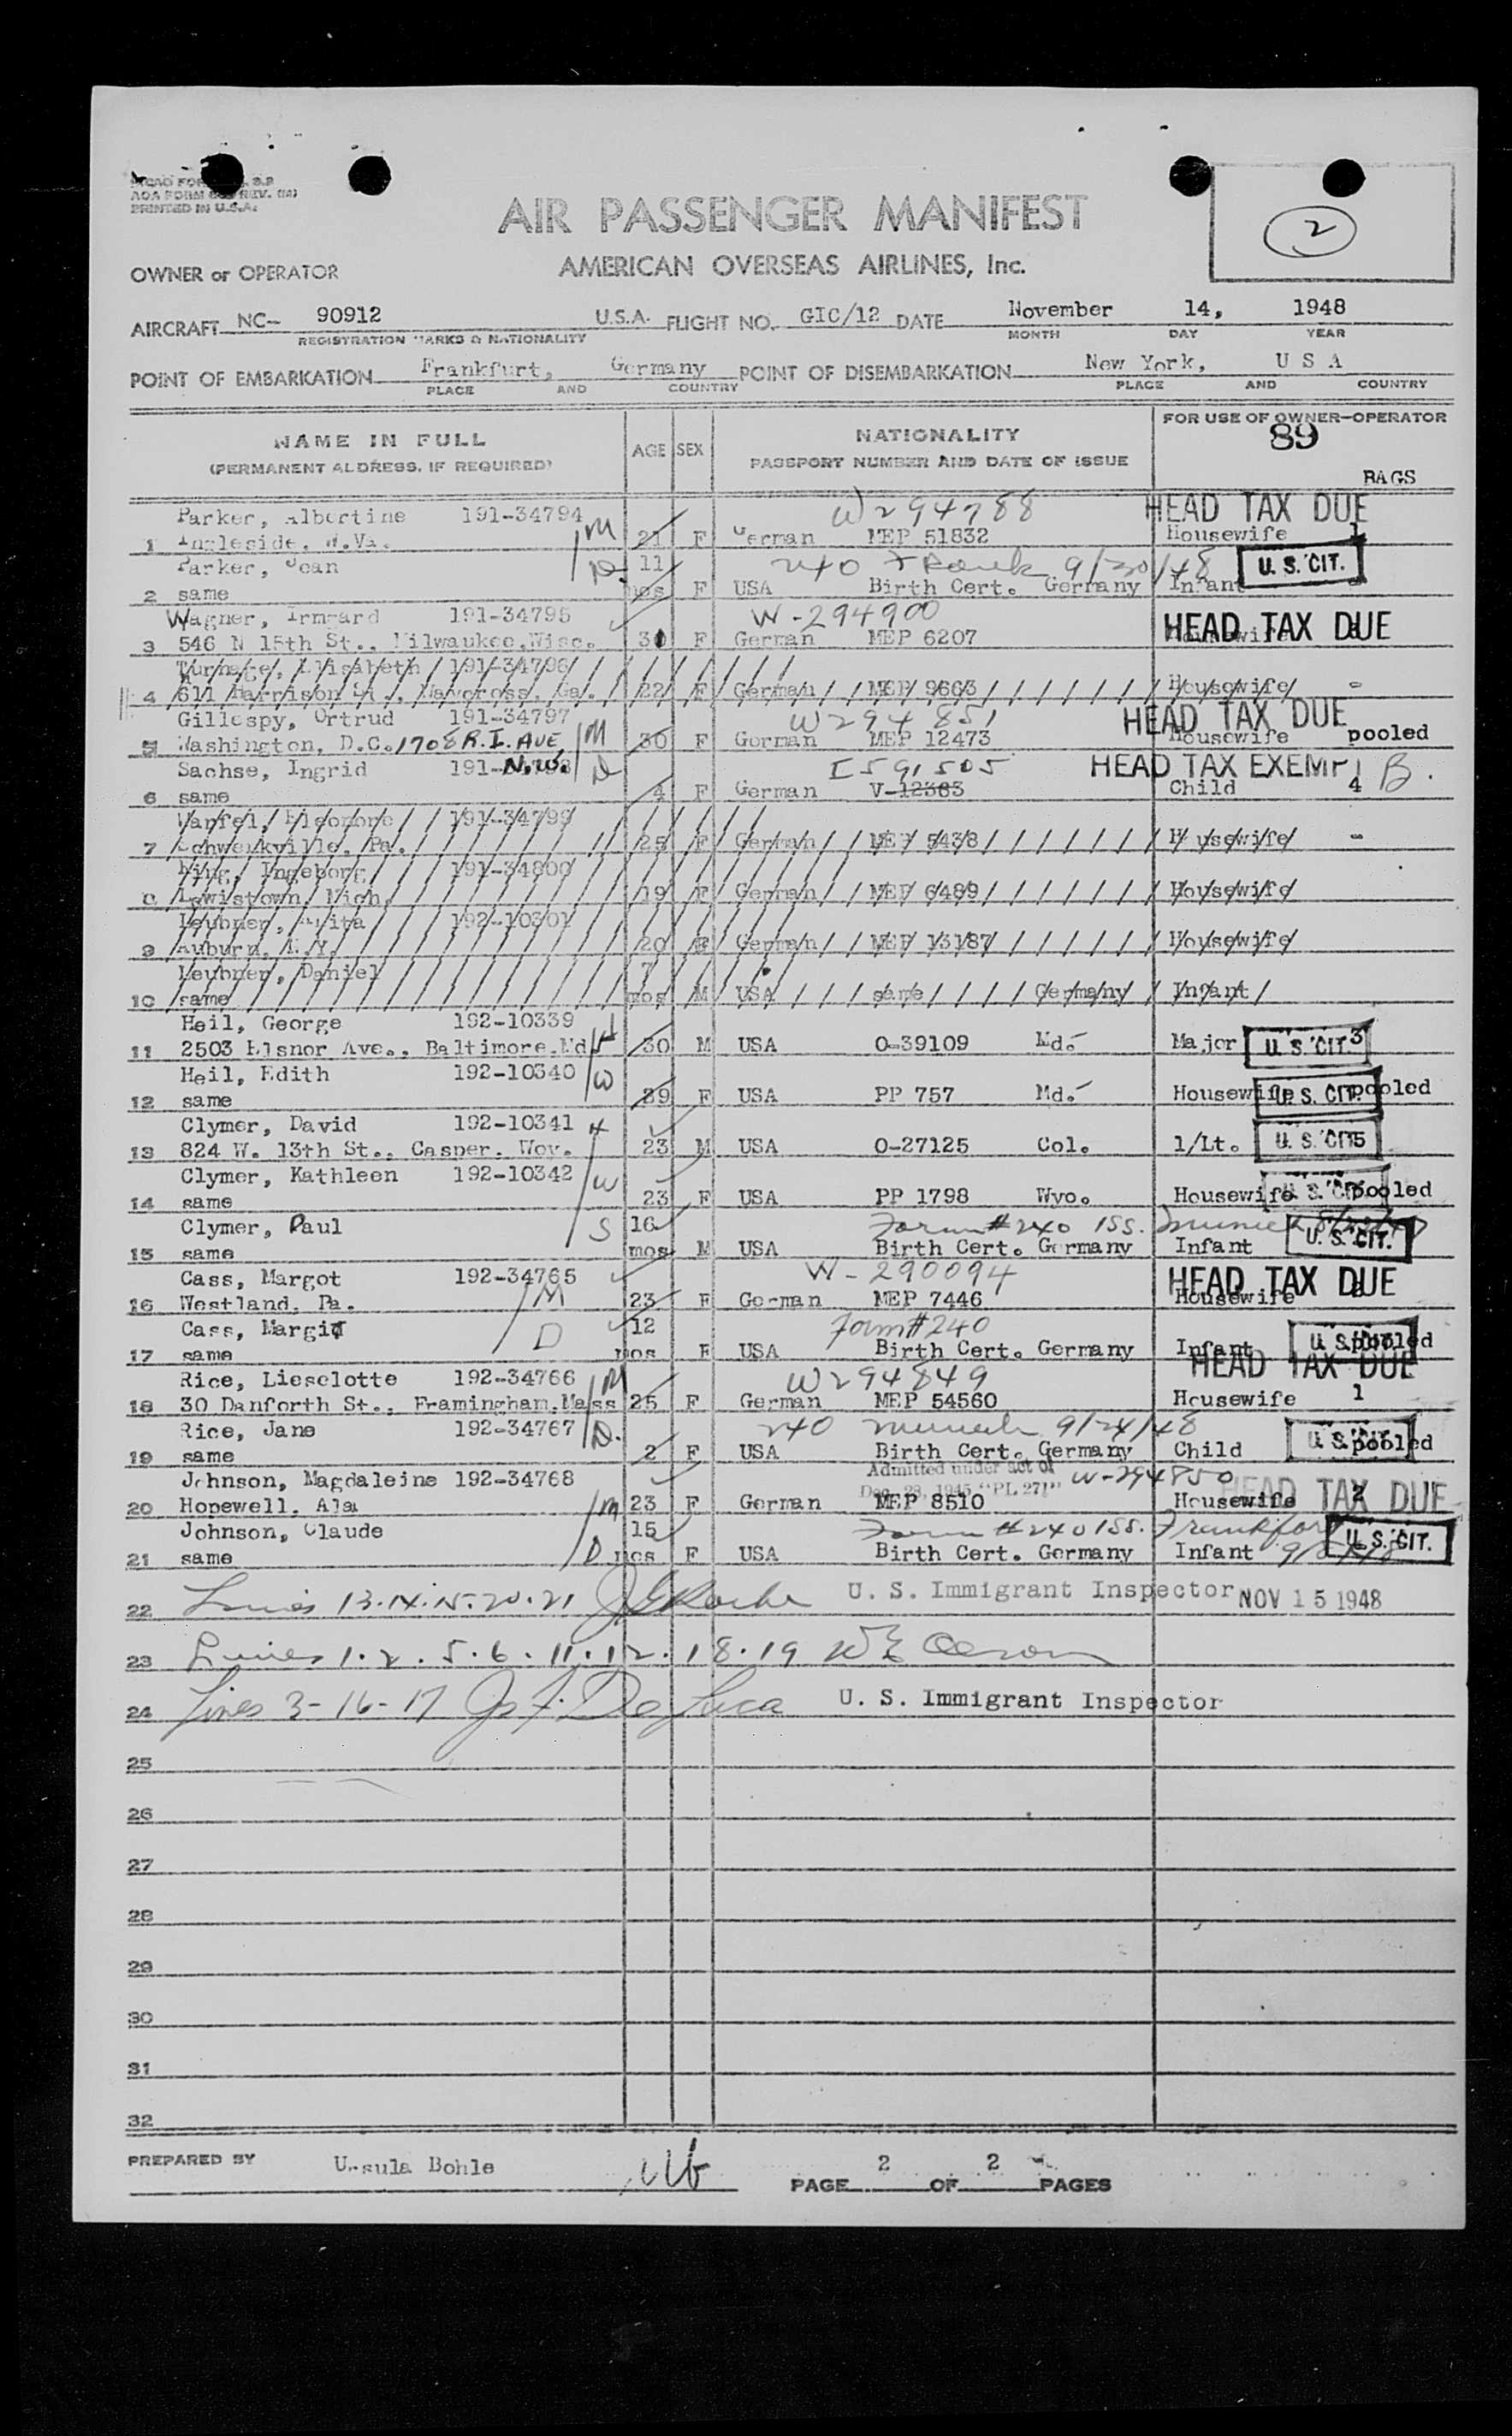 AOA FORM REV. (M)
PRINTED IN U.S.A.
2
AIR PASSENGER MANIFEST
OWNER or OPERATOR AMERICAN OVERSEAS AIRLINES, Inc.
AIRCRAFT NC- 90912 U.S.A. FLIGHT NO. GIC/12 DATE November 14, 1948
REGISTRATION MARKS & NATIONALITY MONTH DAY YEAR
POINT OF EMBARKATION Frankfurt, Germany POINT OF DISEMBARKATION New York, U S A
PLACE AND COUNTRY PLACE AND COUNTRY
NAME IN FULL AGE SEX NATIONALITY FOR USE OF OWNER-OPERATOR
(PERMANENT ADDRESS, IF REQUIRED) PASSPORT NUMBER AND DATE OF ISSUE 89
BAGS
Parker, Albertine 191-34794 M W294788 HEAD TAX DUE
1 Ingleside, W.Va. 21 F German MEP 51832 Housewife 1
Parker, Jean D. 11 240 Frank 9/30/48 U.S. CIT.
2 same mos F USA Birth Cert. Germany Infant -
Wagner, Irmgard 191-34795 W-294900
3 546 N 15th St., Milwaukee, Wisc. 30 F German MEP 6207 Housewife HEAD TAX DUE
Turnage, Elisabeth 191-34796
4 611 Harrison St., Waycross, Ga. 22 F German MEP 9663 Housewife -
Gillespy, Ortrud 191-34797 M W294851 HEAD TAX DUE
5 Washington, D.C. 1708 R.I. AVE, N.W. 30 F German MEP 12473 Housewife pooled
Sachse, Ingrid 191-34798 D I591505 HEAD TAX EXEMPT
6 same 4 F German V-12383 Child 4 B.
Wanfel, Eleonore 191-34799
7 Schwenkville, Pa. 25 F German MEP 5438 Housewife -
King, Ingeborg 191-34800
8 Lewistown, Mich. 19 F German MEP 6489 Housewife
Leubner, Anita 192-10301
9 Auburn, N.Y. 20 F German MEP 13187 Housewife
Leubner, Daniel 7
10 same mos M USA same Germany Infant
Heil, George 192-10339 H
11 2503 Elsnor Ave., Baltimore.Md 30 M USA O-39109 Md. Major 3 U.S. CIT.
Heil, Edith 192-10340 W
12 same 39 F USA PP 757 Md. Housewife pooled U.S. CIT.
Clymer, David 192-10341 H
13 824 W. 13th St., Casper. Woy. 23 M USA O-27125 Col. 1/Lt. 5 U.S. CIT.
Clymer, Kathleen 192-10342 W
14 same 23 F USA PP 1798 Wyo. Housewife pooled U.S. CIT.
Clymer, Paul S 16 Form #240 ISS. Munich
15 same mos M USA Birth Cert. Germany Infant U.S. CIT.
Cass, Margot 192-34765 W-290094
16 Westland, Pa. M 23 F German MEP 7446 Housewife HEAD TAX DUE
Cass, Margit D 12 Form #240
17 same mos F USA Birth Cert. Germany Infant pooled U.S. CIT.
Rice, Lieselotte 192-34766 M W294849 HEAD TAX DUE
18 30 Danforth St., Framingham.Mass 25 F German MEP 54560 Housewife 1
Rice, Jane 192-34767 D. 240 Munich 9/24/48
19 same 2 F USA Birth Cert. Germany Child pooled U.S. CIT.
Johnson, Magdaleine 192-34768 Admitted under act of W-294850
Dec. 28, 1945 "PL 271"
20 Hopewell, Ala M 23 F German MEP 8510 Housewife 2 HEAD TAX DUE
Johnson, Claude 15 Form #240 ISS. Frankfort
21 same D mos F USA Birth Cert. Germany Infant U.S. CIT.
22 Lines 13.14.15.20.21 U. S. Immigrant Inspector NOV 15 1948
23 Lines 1.2.5.6.11.12.18.19
24 Lines 3-16-17 Jos F. De Luca U. S. Immigrant Inspector
25
26
27
28
29
30
31
32
PREPARED BY Ursula Bohle PAGE 2 OF 2 PAGES